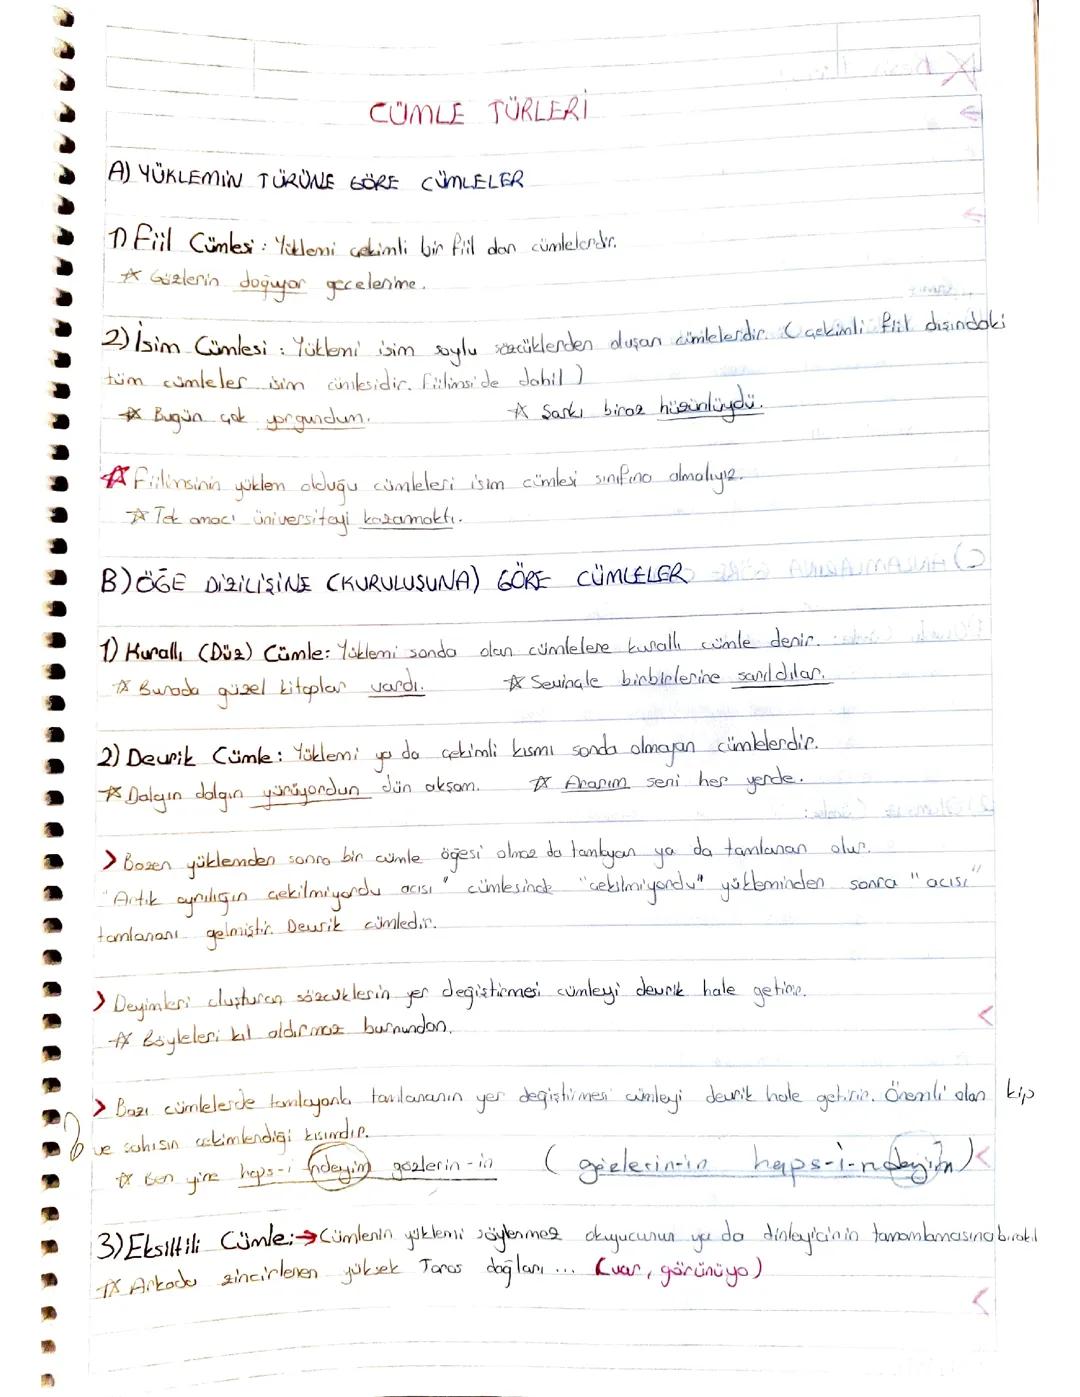 CÜMLE TÜRLERİ
A) YÜKLEMİN TÜRÜNE GÖRE CÜMLELER
1) Fiil Cümlesi : Yüklemi çekimli bir fiil olan cümlelerdir.
☆ Gözlerin doğuyor gecelerime.
2) İsim Cümlesi : Yüklemi isim soylu sözcüklerden oluşan cümlelerdir. ( çekimli fiil dışındaki
tüm cümleler isim cümlesidir. Fiilimsi de dahil )
☆ Bugün çok yorgundum. ☆ Şarkı biraz hüzünlüydü.
☆ Fiilimsinin yüklem olduğu cümleleri isim cümlesi sınıfına almalıyız.
☆ Tek amacı üniversiteyi kazanmaktı.
B) ÖĞE DİZİLİŞİNE (KURULUŞUNA) GÖRE CÜMLELER
1) Kurallı (Düz) Cümle: Yüklemi sonda olan cümlelere kurallı cümle denir.
☆ Burada güzel kitaplar vardı. ☆ Sevinçle birbirlerine sarıldılar.
2) Devrik Cümle: Yüklemi ya da çekimli kısmı sonda olmayan cümlelerdir.
☆ Dalgın dalgın yürüyordun dün akşam. ☆ Ararım seni her yerde.
> Bazen yüklemden sonra bir cümle öğesi olmaz da tamlayan ya da tamlanan olur.
"Artık ayrılığın çekilmiyordu acısı" cümlesinde "çekilmiyordu" yükleminden sonra "acısı"
tamlananı gelmiştir. Devrik cümledir.
> Deyimleri oluşturan sözcüklerin yer değiştirmesi cümleyi devrik hale getirir.
☆ Böyleleri kıl aldırmaz burnundan.
> Bazı cümlelerde tamlayanla tamlananın yer değiştirmesi cümleyi devrik hale getirir. Önemli olan kip
ve şahısın çekimlendiği kısımdır.
☆ Ben yine haps-i ndeyim gözlerin-in ( gözlerin-in haps-i-ndeyim )
3) Eksiltili Cümle: → Cümlenin yüklemi söylenmez okuyucunun ya da dinleyicinin tamamlamasına bırakıl
☆ Arkada zincirlenen yüksek Toros dağları ... (var, görünüyo)